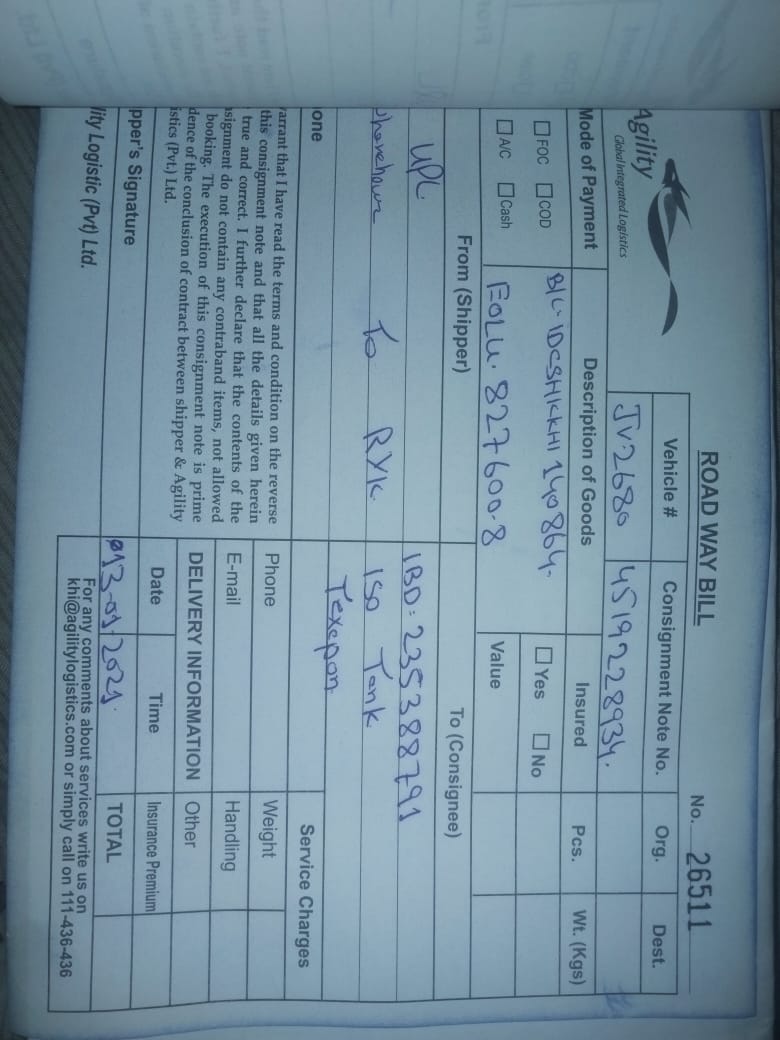 ROAD WAY BILL
No. 26511
Agility
Global Integrated Logistics
Vehicle #
Consignment Note No.
Org.
Dest.
JV-2680
4519228934.
Mode of Payment
Description of Goods
Insured
Pcs.
Wt. (Kgs)
FOC
COD
B/L-IDCSHKKHI 140864-
Yes
No
A/C
Cash
EOLU. 827600-8
Value
From (Shipper)
To (Consignee)
UPL
IBD: 235388791
To RYK
ISO Tank
Texapon
one
Service Charges
arrant that I have read the terms and condition on the reverse
this consignment note and that all the details given herein
true and correct. I further declare that the contents of the
signment do not contain any contraband items, not allowed
booking. The execution of this consignment note is prime
dence of the conclusion of contract between shipper & Agility
istics (Pvt.) Ltd.
Phone
Weight
E-mail
Handling
DELIVERY INFORMATION
Other
Date
Time
Insurance Premium
pper's Signature
13-01-2021
TOTAL
lity Logistic (Pvt) Ltd.
For any comments about services write us on
khi@agilitylogistics.com or simply call on 111-436-436